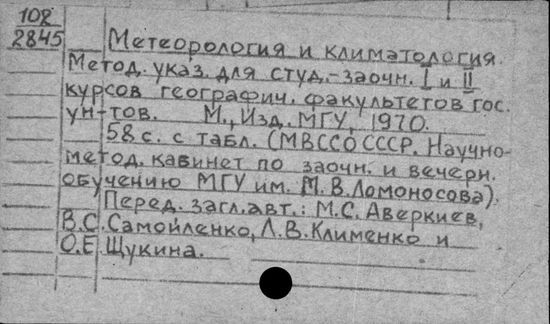 108
2845
Метеорология и климатология.
Метод. указ. для студ.-заочн. I и II
курсов географич. факультетов гос.
ун-тов. М., Изд. МГУ, 1970.
58 с. с табл. (МВССО СССР. Научно-
метод. кабинет по заочн. и вечерн.
обучению МГУ им. М. В. Ломоносова).
Перед. загл. авт.: М.С. Аверкиев,
В.С. Самойленко, Л.В. Клименко и
О.Е. Щукина.